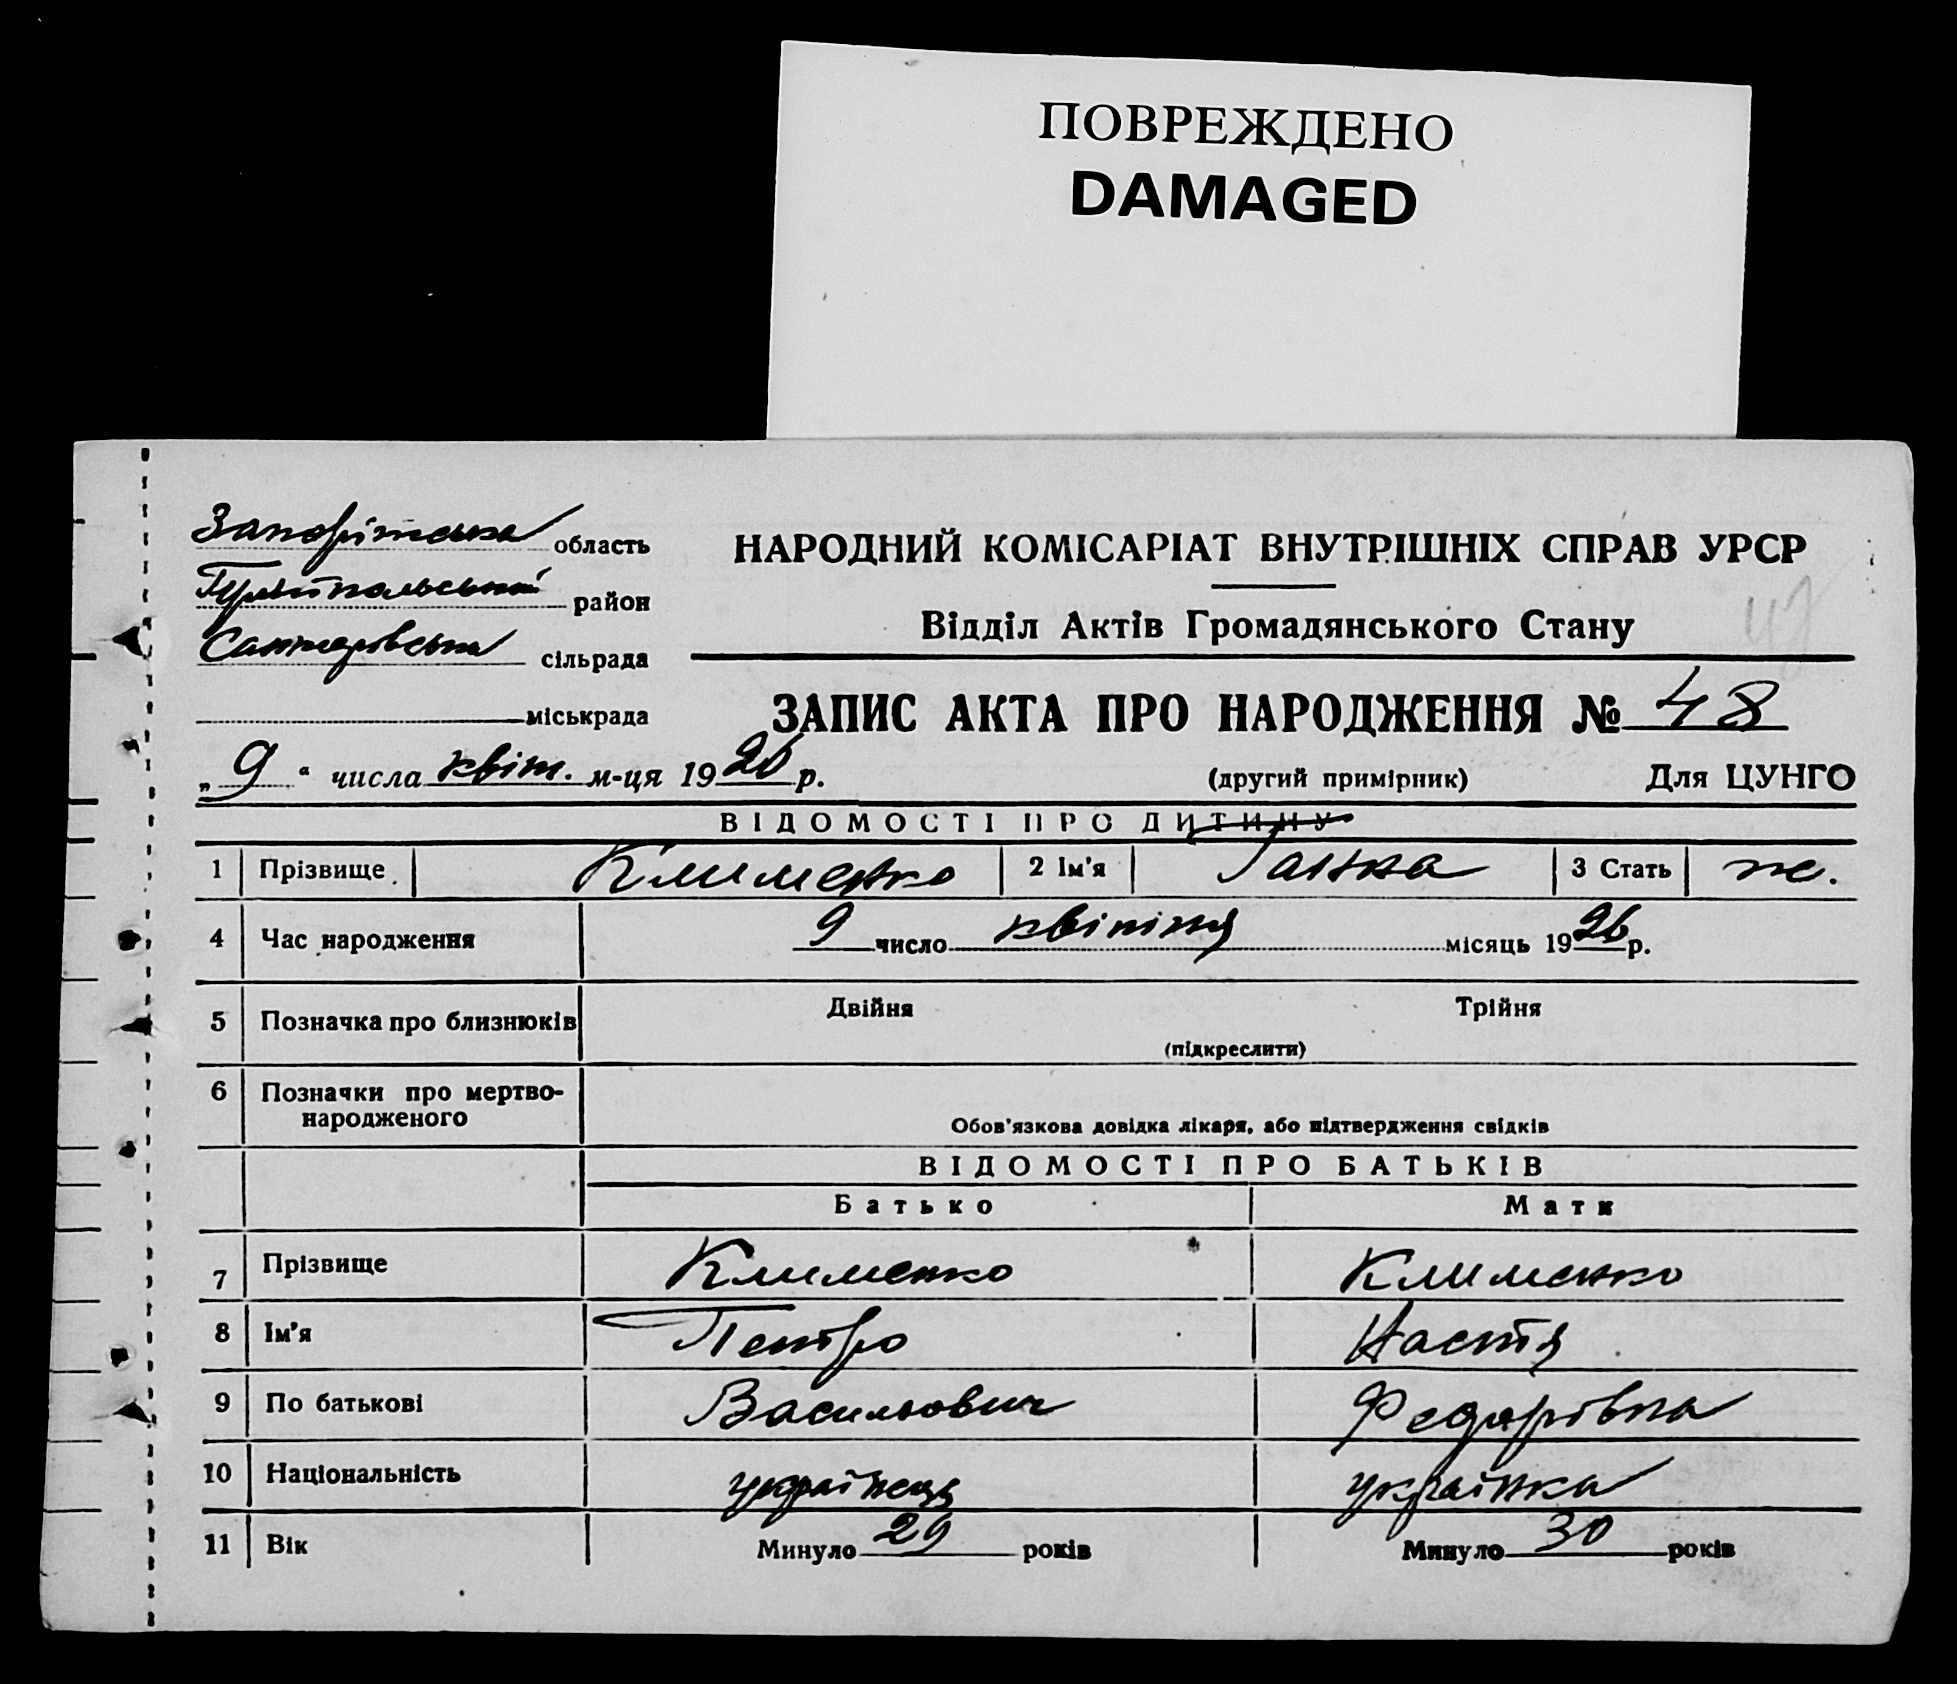 ПОВРЕЖДЕНО
DAMAGED
Запорізька область
НАРОДНИЙ КОМІСАРІАТ ВНУТРІШНІХ СПРАВ УРСР
Гуляйпольський район
47
Відділ Актів Громадянського Стану
сільрада
міськрада
ЗАПИС АКТА ПРО НАРОДЖЕННЯ № 48
„ 9 “ числа квіт. м-ця 1926 р.
(другий примірник) Для ЦУНГО
ВІДОМОСТІ ПРО ДИТИНУ
1 Прізвище Клименко 2 Ім'я Ганна 3 Стать ж.
4 Час народження 9 число квітня місяць 1926 р.
5 Позначка про близнюків Двійня Трійня
(підкреслити)
6 Позначки про мертво-
народженого
Обов'язкова довідка лікаря, або підтвердження свідків
ВІДОМОСТІ ПРО БАТЬКІВ
Батько Мати
7 Прізвище Клименко Клименко
8 Ім'я Петро Настя
9 По батькові Васильович Федорівна
10 Національність українець українка
11 Вік Минуло 29 років Минуло 30 років